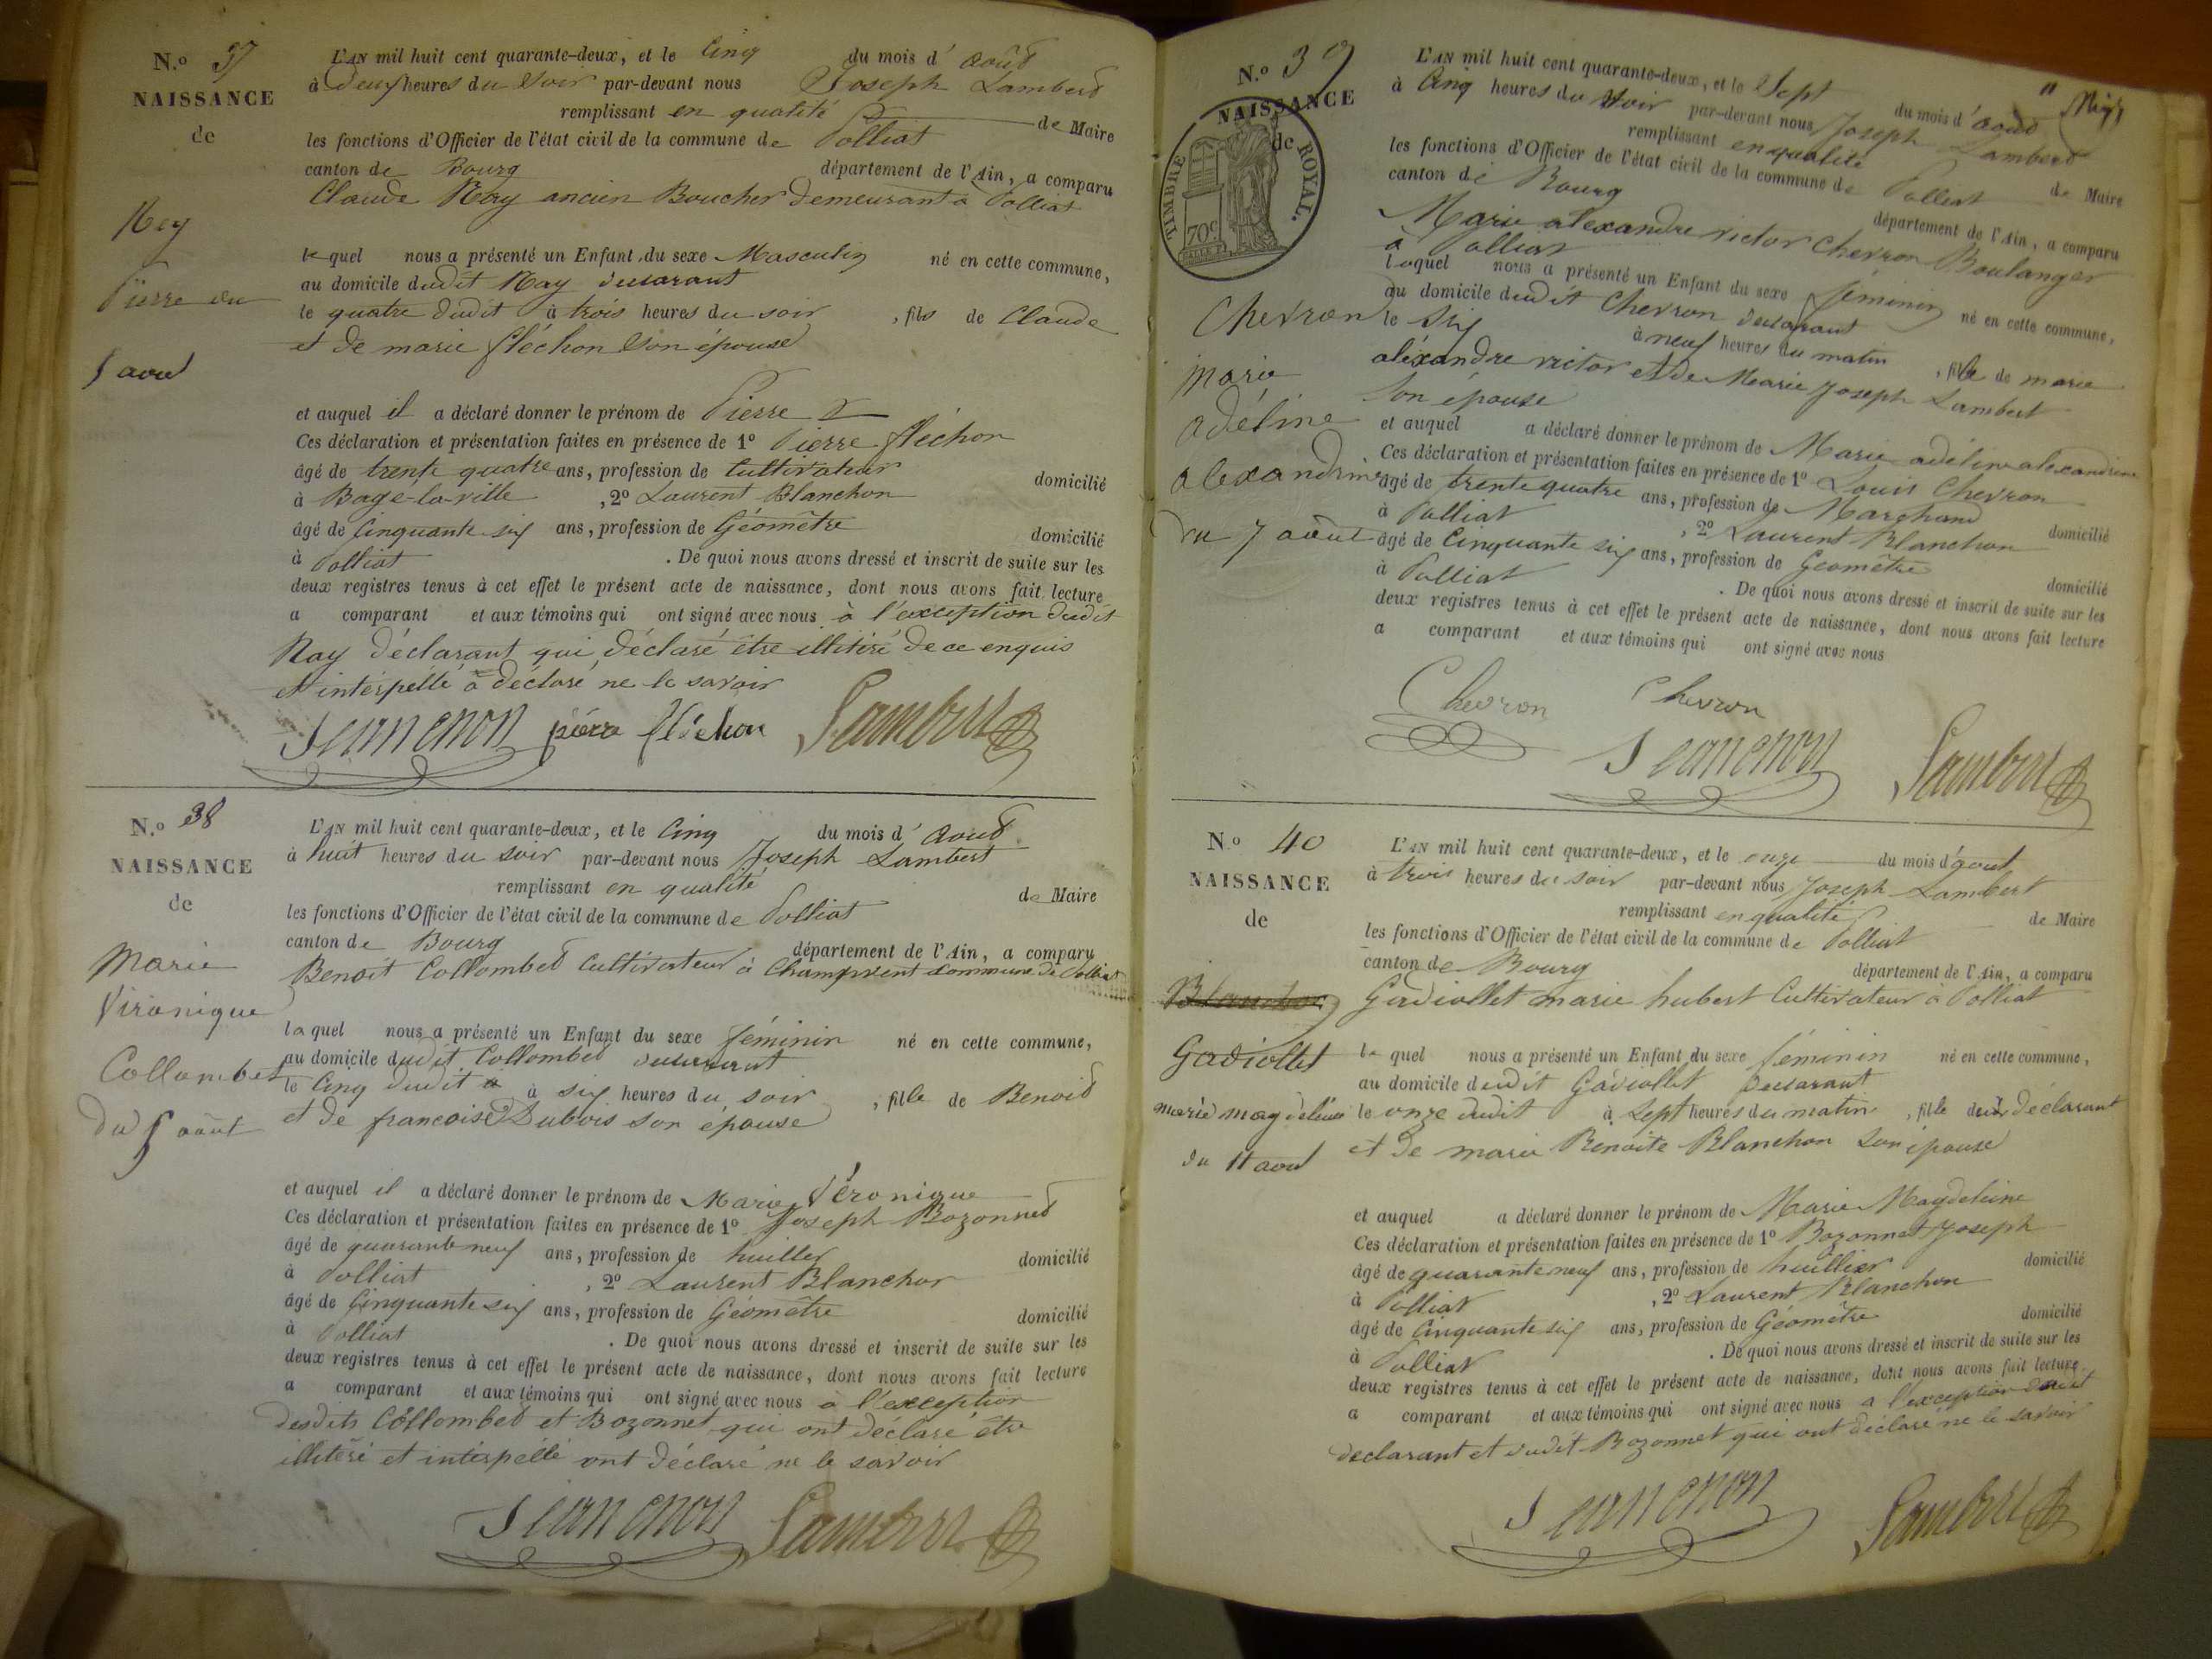 N.º 37
NAISSANCE
de
Rey
Pierre du
5 aout
L'AN mil huit cent quarante-deux, et le Cinq du mois d' août
à deux heures du soir par-devant nous Joseph Lambert
remplissant en qualité de Maire
les fonctions d'Officier de l'état civil de la commune de Polliat
canton de Bourg département de l'Ain, a comparu
Claude Ray ancien Boucher demeurant à Polliat
le quel nous a présenté un Enfant du sexe Masculin né en cette commune,
au domicile dudit Ray déclarant
le quatre dudit à trois heures du soir , fils de Claude
et de marie fléchon son épouse
et auquel il a déclaré donner le prénom de Pierre
Ces déclaration et présentation faites en présence de 1º Pierre fléchon
âgé de trente quatre ans, profession de Cultivateur domicilié
à Bage-la-ville , 2º Laurent Blanchon
âgé de Cinquante six ans, profession de Géomètre domicilié
à Polliat . De quoi nous avons dressé et inscrit de suite sur les
deux registres tenus à cet effet le présent acte de naissance, dont nous avons fait lecture
a comparant et aux témoins qui ont signé avec nous à l'exception dudit
Ray déclarant qui déclaré être illitéré de ce enquis
et intérpellé a déclaré ne le savoir
Jeannenon pierre fléchon Lambert
N.º 38
NAISSANCE
de
Marie
Vironique
Collombet
du 5 août
L'AN mil huit cent quarante-deux, et le Cinq du mois d' Aout
à huit heures du soir par-devant nous Joseph Lambert
remplissant en qualité de Maire
les fonctions d'Officier de l'état civil de la commune de Polliat
canton de Bourg département de l'Ain, a comparu
Benoit Collombet Cultivateur à Champvent commune de Polliat
le quel nous a présenté un Enfant du sexe féminin né en cette commune,
au domicile dudit Collombet déclarant
le Cinq dudit à six heures du soir , fille de Benoit
et de francoise Dubois son épouse
et auquel il a déclaré donner le prénom de Marie Véronique
Ces déclaration et présentation faites en présence de 1º Joseph Bozonnet
âgé de quarante neuf ans, profession de huillier domicilié
à Polliat , 2º Laurent Blanchon
âgé de Cinquante six ans, profession de Géomètre domicilié
à Polliat . De quoi nous avons dressé et inscrit de suite sur les
deux registres tenus à cet effet le présent acte de naissance, dont nous avons fait lecture
a comparant et aux témoins qui ont signé avec nous à l'exception
desdits Collombet et Bozonnet qui ont déclaré être
illitéré et intérpéllé ont déclaré ne le savoir
Jeannenon Lambert
N.º 39
NAISSANCE
de
TIMBRE ROYAL.
70c
Chevron
marie
adéline
alexandrine
du 7 août
L'AN mil huit cent quarante-deux, et le Sept du mois d' août
à Cinq heures du soir par-devant nous Joseph Lambert
remplissant en qualité de Maire
les fonctions d'Officier de l'état civil de la commune de Polliat
canton de Bourg département de l'Ain, a comparu
Marie alexandre victor Chevron Boulanger
à Polliat
lequel nous a présenté un Enfant du sexe féminin né en cette commune,
au domicile dudit Chevron déclarant
le six à neuf heures du matin , fille de marie
aléxandre victor et de Marie Joseph Lambert
son épouse
et auquel a déclaré donner le prénom de Marie adéline alexandrine
Ces déclaration et présentation faites en présence de 1º Louis Chevron
âgé de trente quatre ans, profession de Marchand domicilié
à Polliat , 2º Laurent Blanchon
âgé de Cinquante six ans, profession de Géomètre domicilié
à Polliat . De quoi nous avons dressé et inscrit de suite sur les
deux registres tenus à cet effet le présent acte de naissance, dont nous avons fait lecture
a comparant et aux témoins qui ont signé avec nous
Chevron Chevron
Jeannenon Lambert
N.º 40
NAISSANCE
de
Blanchon
Gadiollet
marie magdeleine
du 11 aout
L'AN mil huit cent quarante-deux, et le onze du mois d'aout
à trois heures du soir par-devant nous Joseph Lambert
remplissant en qualité de Maire
les fonctions d'Officier de l'état civil de la commune de Polliat
canton de Bourg département de l'Ain, a comparu
Gadiollet marie hubert Cultivateur à Polliat
le quel nous a présenté un Enfant du sexe féminin né en cette commune,
au domicile dudit Gadiollet déclarant
le onze dudit à sept heures du matin , fille dudit déclarant
et de marie Benoite Blanchon son épouse
et auquel a déclaré donner le prénom de Marie Magdeleine
Ces déclaration et présentation faites en présence de 1º Bozonnet Joseph
âgé de quarante neuf ans, profession de huillier domicilié
à Polliat , 2º Laurent Blanchon
âgé de Cinquante six ans, profession de Géomètre domicilié
à Polliat . De quoi nous avons dressé et inscrit de suite sur les
deux registres tenus à cet effet le présent acte de naissance, dont nous avons fait lecture
a comparant et aux témoins qui ont signé avec nous a l'exception dudit
declarant et dudit Bozonnet qui ont déclaré ne le savoir
Jeannenon Lambert